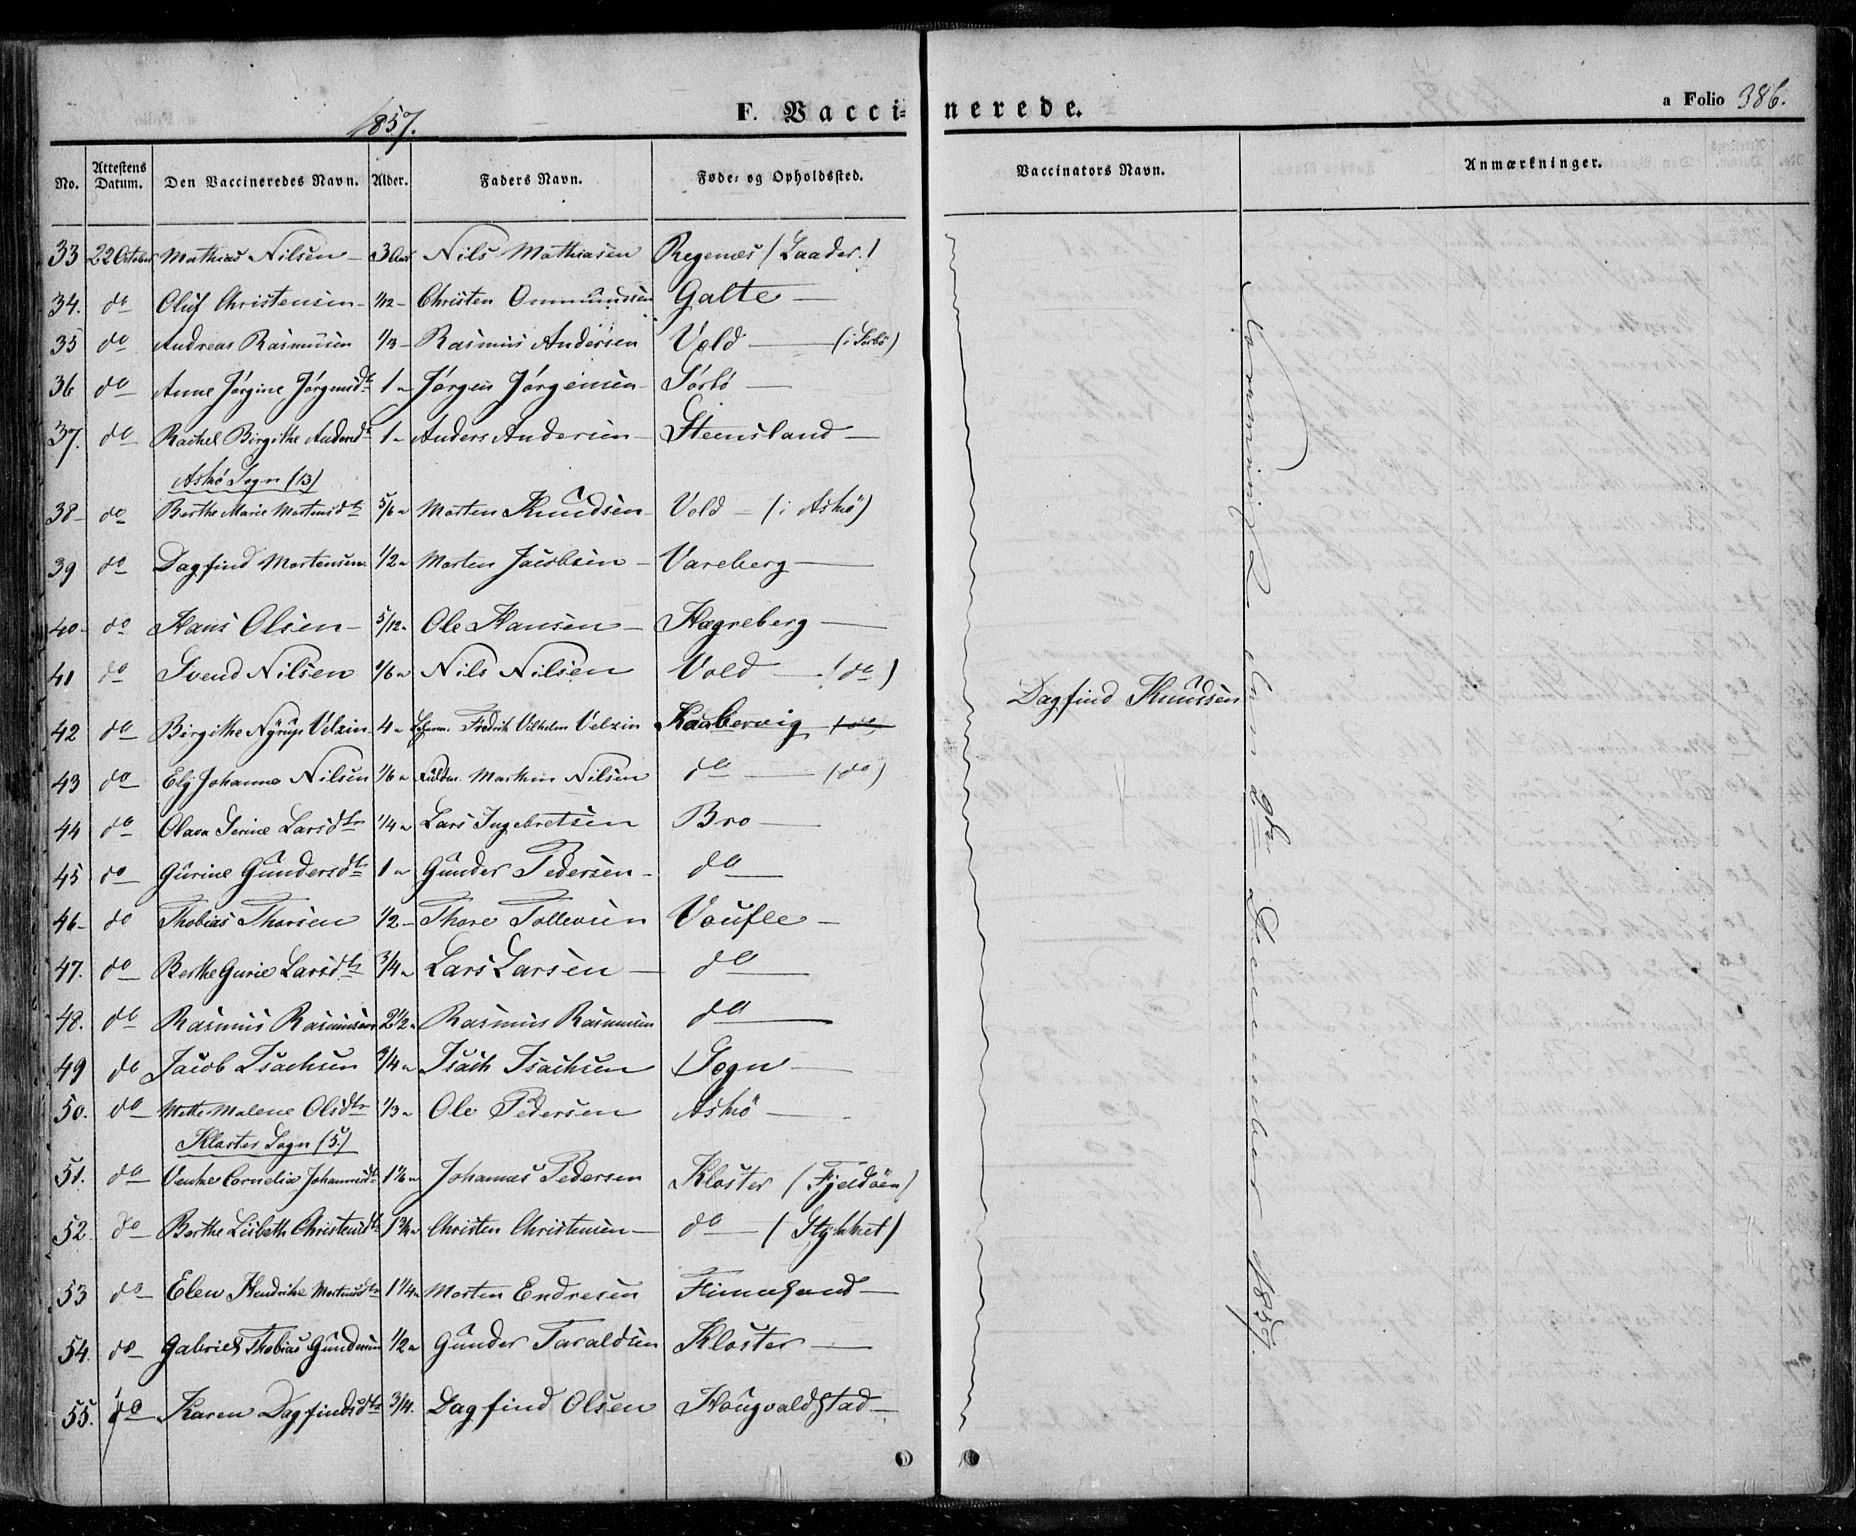 1857.
F. Vaccinerede.
a Folio 386.
No. Attestens Datum. Den Vaccineredes Navn. Alder. Faders Navn. Føde- og Opholdssted. Vaccinators Navn. Anmærkninger.
33 22 October Mathias Nilsen 3 Aar Nils Mathiasen Regenæs (Laader.)
34. do Oluf Christensen 1/12 Christen Ommundsen Galte
35 do Andreas Rasmusen 1/3 Rasmus Andersen Vold (i Sørbö)
36 do Anne Jørgine Jørgensdtr 1 Jørgen Jørgensen Sørbö
37. do Rachel Birgithe Andersdtr 1 Anders Andersen Steensland
Askø Sogn (13)
38 do Berthe Marie Mortensdtr 5/6 Morten Knudsen Vold (i Askö)
39 do Dagfind Mortensen 1/2 Morten Jacobsen Vareberg
40 do Hans Olsen 5/12 Ole Hansen Hægreberg
41 do Svend Nilsen 1/6 Nils Nilsen Vold (do)
Dagfind Knudsen
42 do Birgithe Nyrup Velzin 4 Fredrik Vilhelm Velzin Haabervig (do)
43 do Elj Johanne Nilsen 1/6 Mathias Nilsen do (do)
44 do Olava Serine Larsdtr 1/4 Lars Ingebretsen Bro
45 do Gurine Gundersdtr 1 Gunder Pedersen do
46 do Thobias Thorsen 1/2 Thore Tollevsen Voufle
47. do Berthe Gurie Larsdtr 3/4 Lars Larsen do
48. do Rasmus Rasmusen 2 1/2 Rasmus Rasmusen do
49 do Jacob Isachsen 3/4 Isach Isachsen Sogn
50. do Mette Malene Olsdtr 1/3 Ole Pedersen Askö
Kloster Sogn (5.)
51. do Venke Cornelia Johannesdtr 1 1/6 Johannes Pedersen Kloster (Fjeldöen)
52 do Berthe Lisbeth Christensdtr 1 3/4 Christen Christensen do (Stykket)
53 do Elen Hendrikke Mortensdtr 1 1/4 Morten Endresen Finnesand
54. do Gabriel Thobias Gundersen 1/2 Gunder Taraldsen Kloster
55. do Karen Dagfindsdtr 3/4. Dagfind Olsen Hougvaldstad
December 1857.